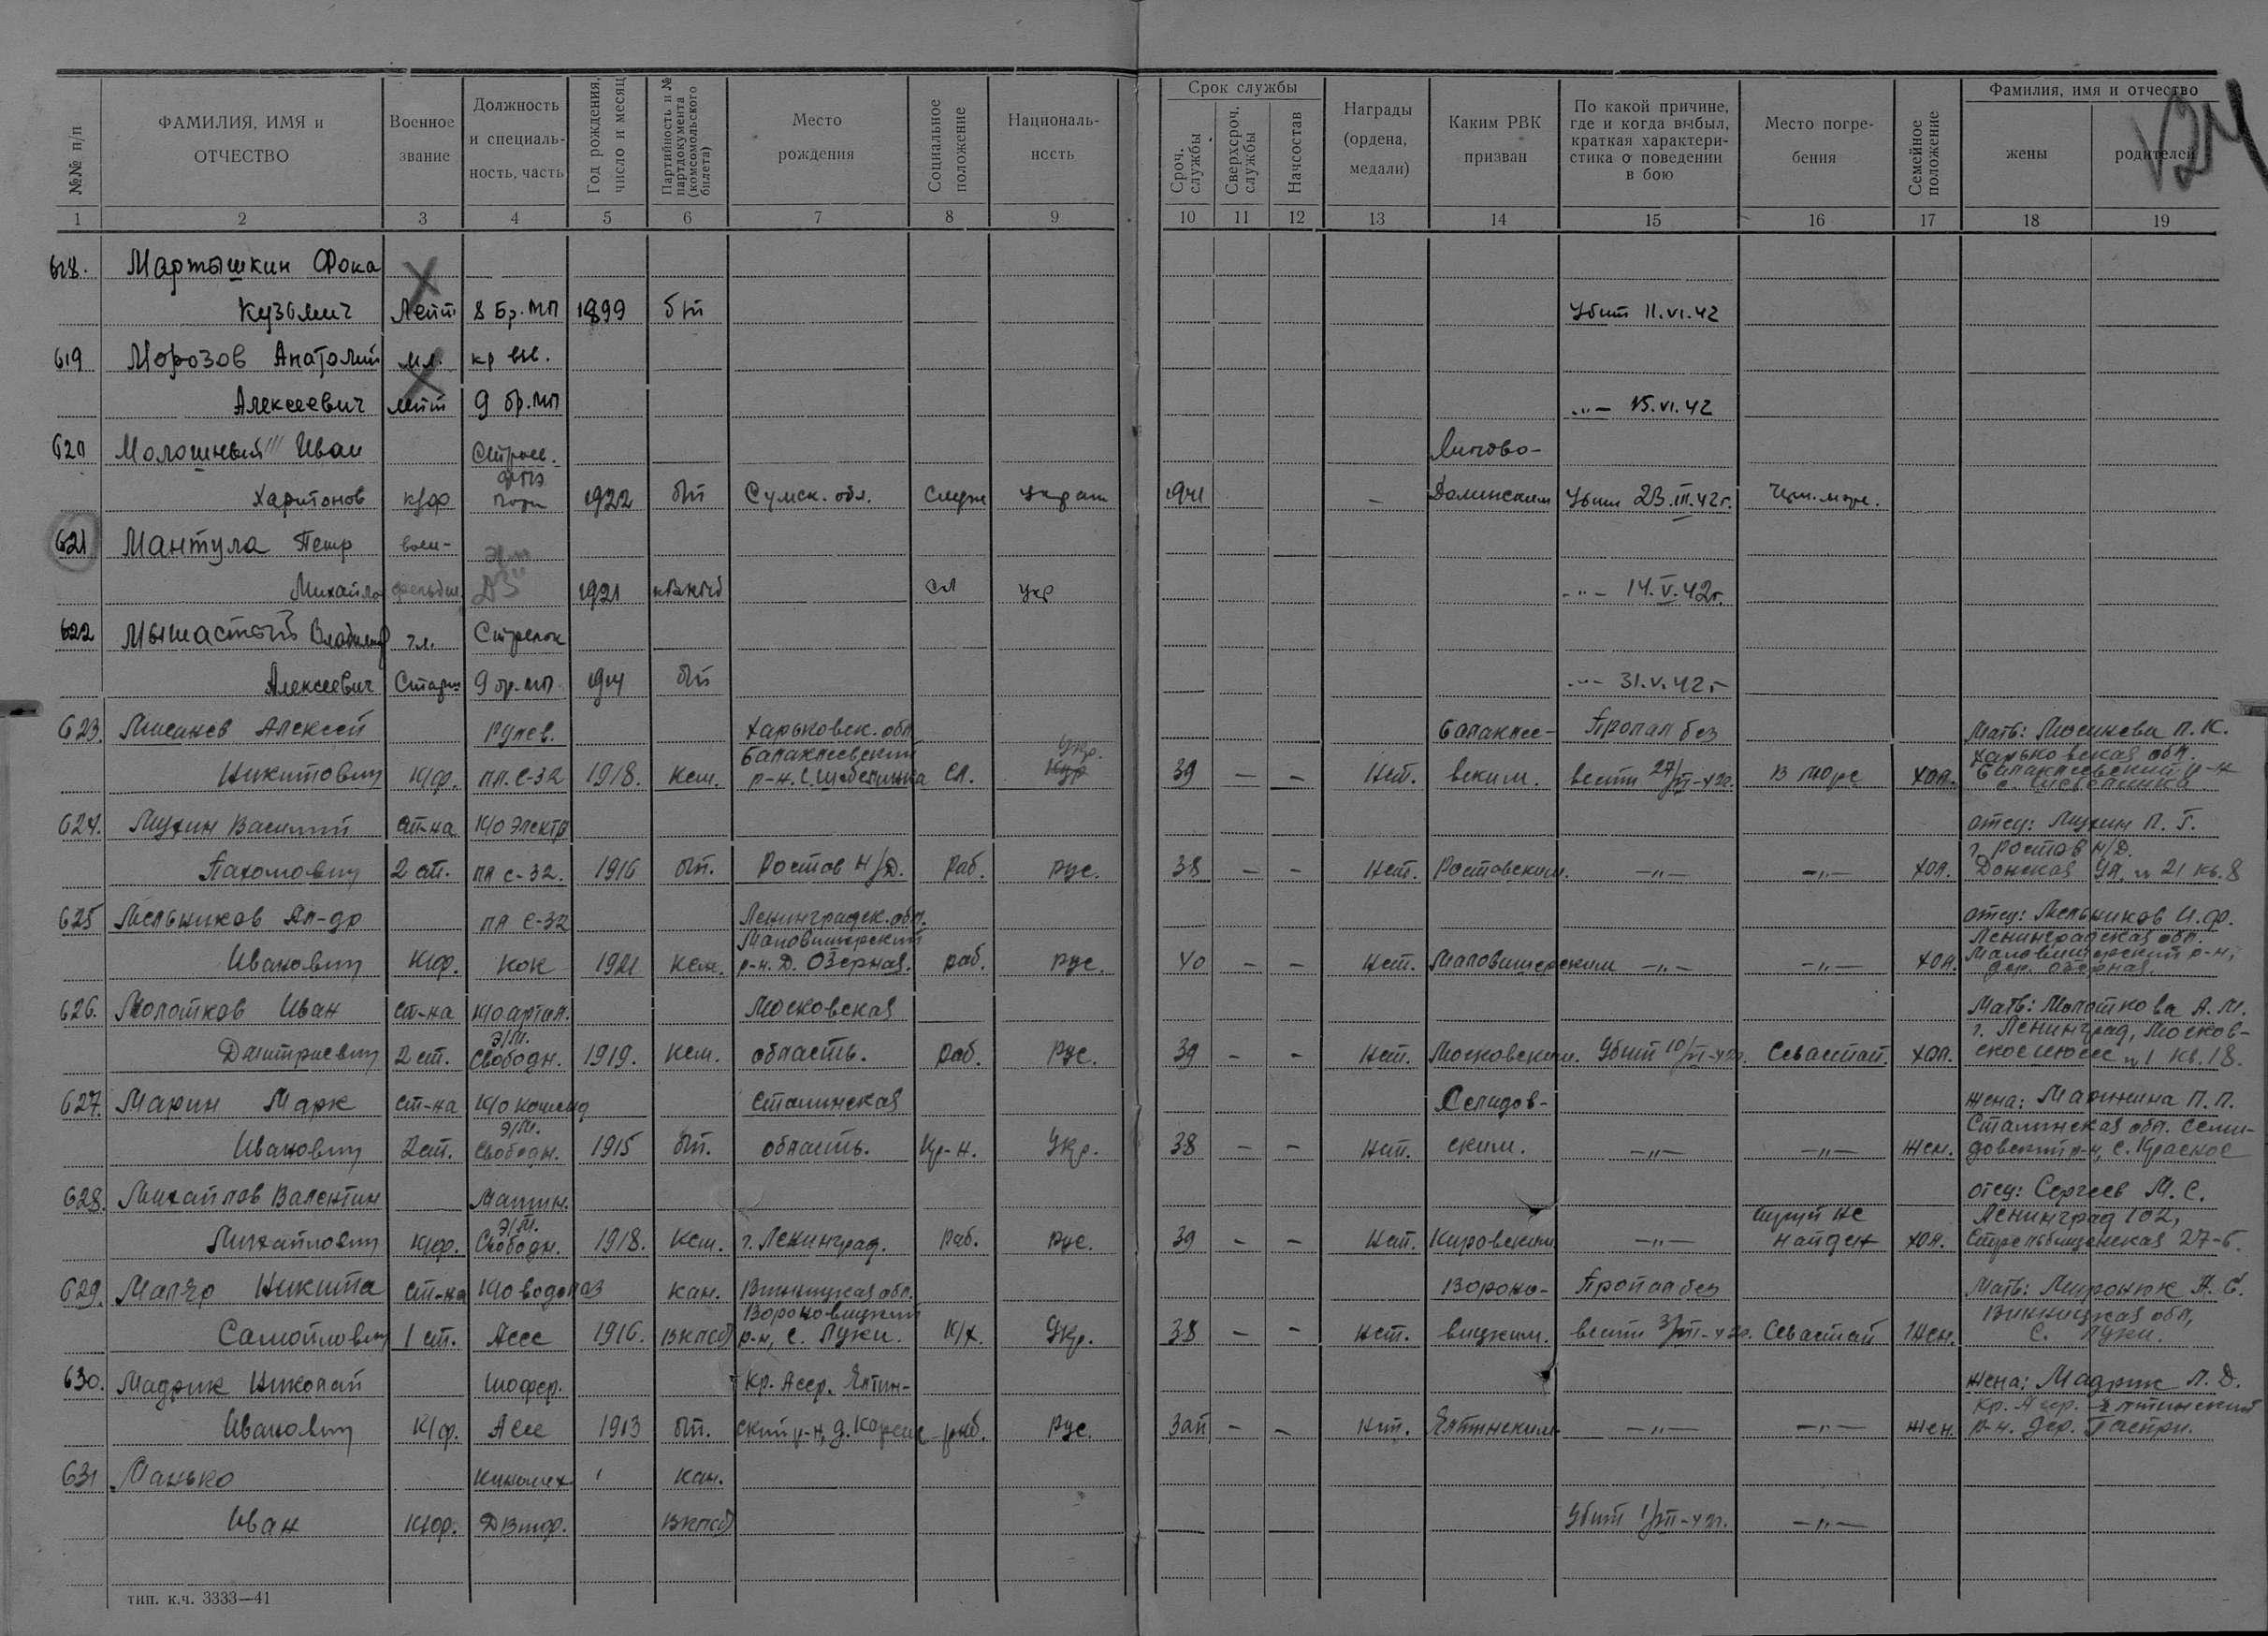 №№ п/п
ФАМИЛИЯ, ИМЯ и ОТЧЕСТВО
Военное звание
Должность и специаль-ность, часть
Год рождения, число и месяц
Партийность и № партдокумента (комсомольского билета)
Место рождения
Социальное положение
Националь-ность
Срок службы
Сроч. службы
Сверхсроч. службы
Начсостав
Награды (ордена, медали)
Каким РВК призван
По какой причине, где и когда выбыл, краткая характери-стика о поведении в бою
Место погре-бения
Семейное положение
Фамилия, имя и отчество
жены
родителей
1 2 3 4 5 6 7 8 9 10 11 12 13 14 15 16 17 18 19
618. Мартышкин Фока
Кузьмич Лейт 8 Бр. МП 1899 б/п Убит 11.VI.42
619 Морозов Анатолий мл. кр вв.
Алексеевич лейт 9 бр. МП -"- 15.VI.42
620 Молошный Иван Липово-
Харитонов к/ф 1922 б/п Сумск. обл. Служ Украин 1941 - Долинским Убит 23.III.42г. Черн. море.
621 Мантула Петр воен-
Михайло фельдш 1921 сл укр -"- 14.V.42г.
622 Мышастый Владимир гл. Стрелок
Алексеевич Старш 9 бр. МП 1914 б/п -"- 31.V.42г
623. Алексей Рулев. Харьковск. обл. Балаклее- Пропал без Мать: П. К.
Балаклеевский Укр. Харьковская обл.
Никитович К/ф. ПЛ. С-32 1918. Ксм. р-н. С. Шебелинка Сл. 39 - - Нет. вским. вести 27/VI-42г. В море хол. Балаклеевский р-н
с. Шебелинка
624. Мухин Василий ст-на К/О электр отец: Мухин П. Г.
г. Ростов н/Д.
Пахомович 2 ст. ПЛ С-32. 1916 б/п. Ростов н/Д. Раб. Рус. 38 - - Нет. Ростовским. -"- -"- хол. Донская ул. 21 кв. 8
625 Мельников Ал-др ПЛ С-32 Ленинградск. обл. отец: Мельников И. Ф.
Маловишерский Ленинградская обл.
Иванович К/ф. Кок 1921 Ксм. р-н. Д. Озерная. раб. Рус. 40 - - Нет. Маловишерским -"- -"- хол. Маловишерский р-н,
дер. Озерная.
626. Молотков Иван ст-на К/О артил. Московская Мать: Молоткова А. М.
Э/М. г. Ленинград, Москов-
Дмитриевич 2 ст. Свободн. 1919. Ксм. область. раб. Рус. 39 - - Нет. Московским. Убит 10/VI-42г. Севастоп. хол. ское шоссе 1 кв. 18.
627. Марин Марк ст-на К/О команд Сталинская Селидов- жена: Маринина П. П.
Э/М. Сталинская обл. Сели-
Иванович 2 ст. Свободн. 1915 б/п. область. Кр-н. Укр. 38 - - Нет. ским. -"- -"- жен. довский р-н, С. Красное
628. Михайлов Валентин Машин. отец: Сергеев М. С.
Э/М. не Ленинград 102,
Михайлович К/ф. Свободн. 1918. Ксм. г. Ленинград. Раб. Рус. 39 - - Нет. Кировским -"- найден хол. 27-6.
629. Никита ст-на К/О водолаз кан. Винницкая обл. Вороно- Пропал без Мать: Миронюк
Вороновицкий Винницкая обл,
Самойлович 1 ст. Ассс 1916. ВКП(б) р-н, с. Луки. К/х. Укр. 38 - - Нет. вицким. вести 3/VII-42г. Севастоп Жен. С. Луки.
630. Мадрик Николай Шофер. Кр. Асср. Ялтин- жена: Мадрик Л. Д.
Кр. Асср. Ялтинский
Иванович К/ф. Асс 1913 б/п. ский р-н, д. раб. Рус. Зап - - Нет. Ялтинским -"- -"- жен. р-н. дер. Гаспри.
631 Манько Киномех кан.
Иван К/ф. ВКП(б) Убит 1/VII-42г. -"-
тип. к.ч. 3333—41